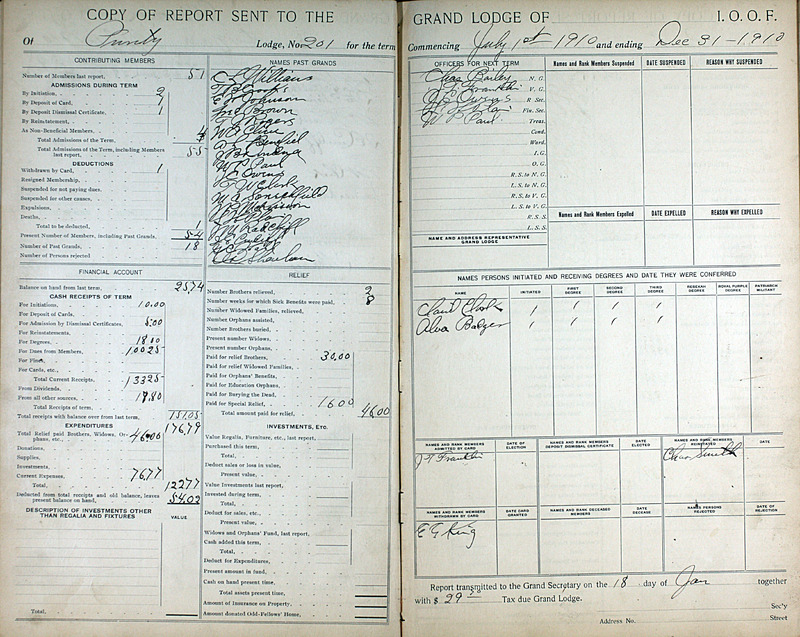 COPY OF REPORT SENT TO THE
Of Purity Lodge, No. 201 for the term
CONTRIBUTING MEMBERS
Number of Members last report, 51
ADMISSIONS DURING TERM
By Initiation, 2
By Deposit of Card, 1
By Deposit Dismissal Certificate, 1
By Reinstatement,
As Non-Beneficial Members,
Total Admissions of the Term, 4
Total Admissions of the Term, including Members last report, 55
DEDUCTIONS
Withdrawn by Card, 1
Resigned Membership,
Suspended for not paying dues,
Suspended for other causes,
Expulsions,
Deaths,
Total to be deducted, 1
Present Number of Members, including Past Grands, 54
Number of Past Grands, 18
Number of Persons rejected
NAMES PAST GRANDS
C L Williams
Johnson
Brown
Rogers
W P Paul
Owens
FINANCIAL ACCOUNT
Balance on hand from last term, 25.74
CASH RECEIPTS OF TERM
For Initiations, 10.00
For Deposit of Cards,
For Admission by Dismissal Certificates, 5.00
For Reinstatements,
For Degrees, 18.00
For Dues from Members, 100.25
For Fines,
For Cards, etc.,
Total Current Receipts, 133.25
From Dividends,
From all other sources, 17.80
Total Receipts of term, 151.05
Total receipts with balance over from last term, 176.79
EXPENDITURES
Total Relief paid Brothers, Widows, Orphans, etc., 46.00
Donations,
Supplies,
Investments,
Current Expenses, 76.77
Total, 122.77
Deducted from total receipts and old balance, leaves present balance on hand, 54.02
DESCRIPTION OF INVESTMENTS OTHER THAN REGALIA AND FIXTURES
VALUE
Total,
RELIEF
Number Brothers relieved, 2
Number weeks for which Sick Benefits were paid, 8
Number Widowed Families, relieved,
Number Orphans assisted,
Number Brothers buried,
Present number Widows,
Present number Orphans,
Paid for relief Brothers, 30.00
Paid for relief Widowed Families,
Paid for Orphans' Benefits,
Paid for Education Orphans,
Paid for Burying the Dead,
Paid for Special Relief, 16.00
Total amount paid for relief, 46.00
INVESTMENTS, Etc.
Value Regalia, Furniture, etc., last report,
Purchased this term,
Total,
Deduct sales or loss in value,
Present value,
Value Investments last report,
Invested during term,
Total,
Deduct for sales, etc.,
Present value,
Widows and Orphans' Fund, last report,
Cash added this term,
Total,
Deduct for Expenditures,
Present amount in fund,
Cash on hand present time,
Total assets present time,
Amount of Insurance on Property,
Amount donated Odd-Fellows' Home,
GRAND LODGE OF I. O. O. F.
Commencing July 1st 1910 and ending Dec 31-1910
OFFICERS FOR NEXT TERM
Chas Bailey N. G.
Franklin V. G.
Owens R. Sec.
Fin. Sec.
W P Paul Treas.
Cond.
Ward.
I. G.
O. G.
R. S. to N. G.
L. S. to N. G.
R. S. to V. G.
L. S. to V. G.
R. S. S.
L. S. S.
NAME AND ADDRESS REPRESENTATIVE GRAND LODGE
Names and Rank Members Suspended
DATE SUSPENDED
REASON WHY SUSPENDED
Names and Rank Members Expelled
DATE EXPELLED
REASON WHY EXPELLED
NAMES PERSONS INITIATED AND RECEIVING DEGREES AND DATE THEY WERE CONFERRED
NAME INITIATED FIRST DEGREE SECOND DEGREE THIRD DEGREE REBEKAH DEGREE ROYAL PURPLE DEGREE PATRIARCH MILITANT
Claud Clark / / / /
Alva Badger / / / /
NAMES AND RANK MEMBERS ADMITTED BY CARD
DATE OF ELECTION
NAMES AND RANK MEMBERS DEPOSIT DISMISSAL CERTIFICATE
DATE ELECTED
NAMES AND RANK MEMBERS REINSTATED
DATE
J F Franklin
Chas Smith
NAMES AND RANK MEMBERS WITHDRAWN BY CARD
DATE CARD GRANTED
NAMES AND RANK DECEASED MEMBERS
DATE DECEASE
NAMES PERSONS REJECTED
DATE REJECTED
E G King
Report transmitted to the Grand Secretary on the 18 day of Jan together
with $ 29 Tax due Grand Lodge. Sec'y
Address No. Street